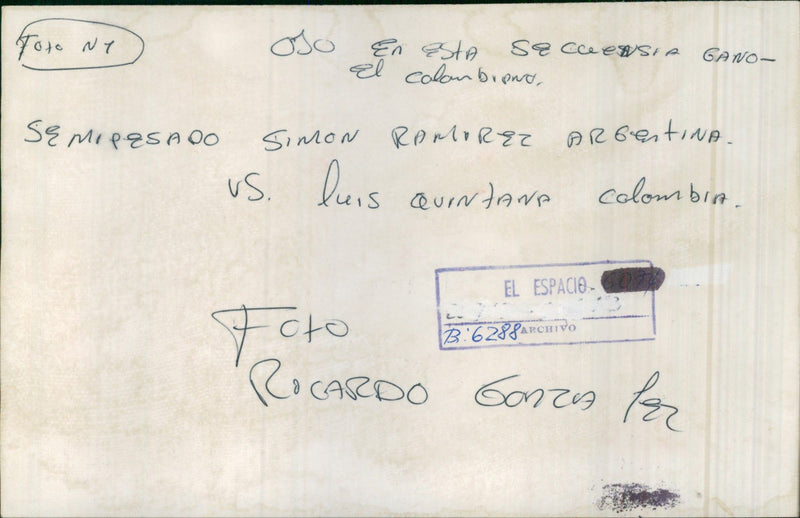 Foto N1
OJO EN ESTA SECUENSIA GANO-
El colombiano.
SEMIPESADO SIMON RAMIREZ ARGENTINA.
VS. luis QUINTANA Colombia.
EL ESPACIO-
B:6288 ARCHIVO
Foto
RICARDO GONZALez